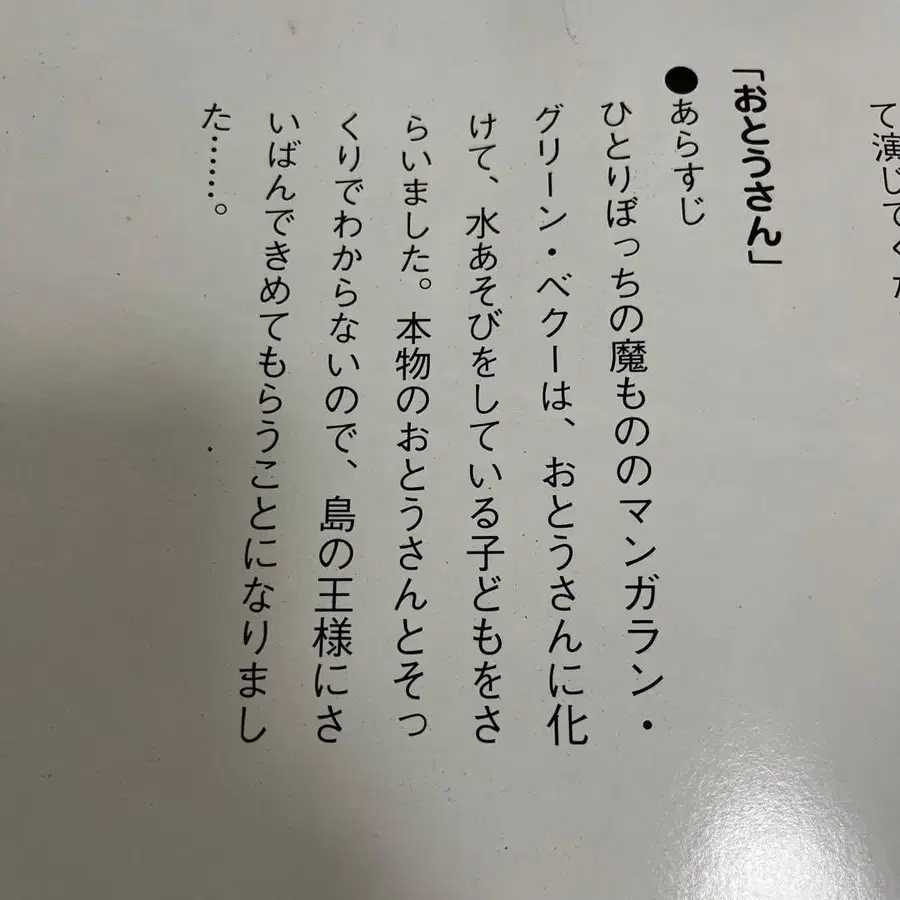 て演じてく
「おとうさん」
●あらすじ
ひとりぼっちの魔もののマンガラン・
グリーン・ベクーは、おとうさんに化
けて、水あそびをしている子どもをさ
らいました。本物のおとうさんとそっ
くりでわからないので、島の王様にさ
いばんできめてもらうことになりまし
た……。